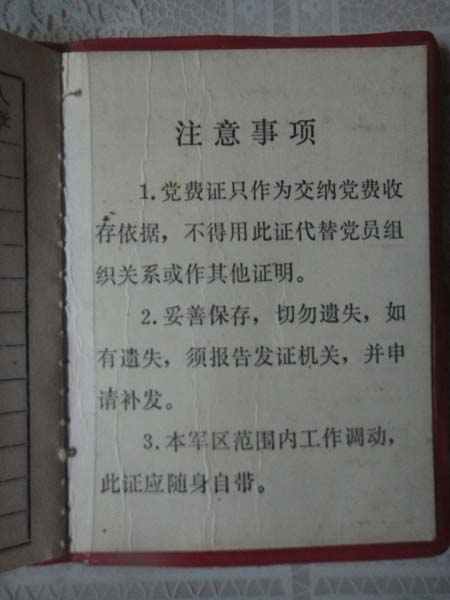 注意事项
1.党费证只作为交纳党费收
存依据，不得用此证代替党员组
织关系或作其他证明。
2.妥善保存，切勿遗失，如
有遗失，须报告发证机关，并申
请补发。
3.本军区范围内工作调动，
此证应随身自带。